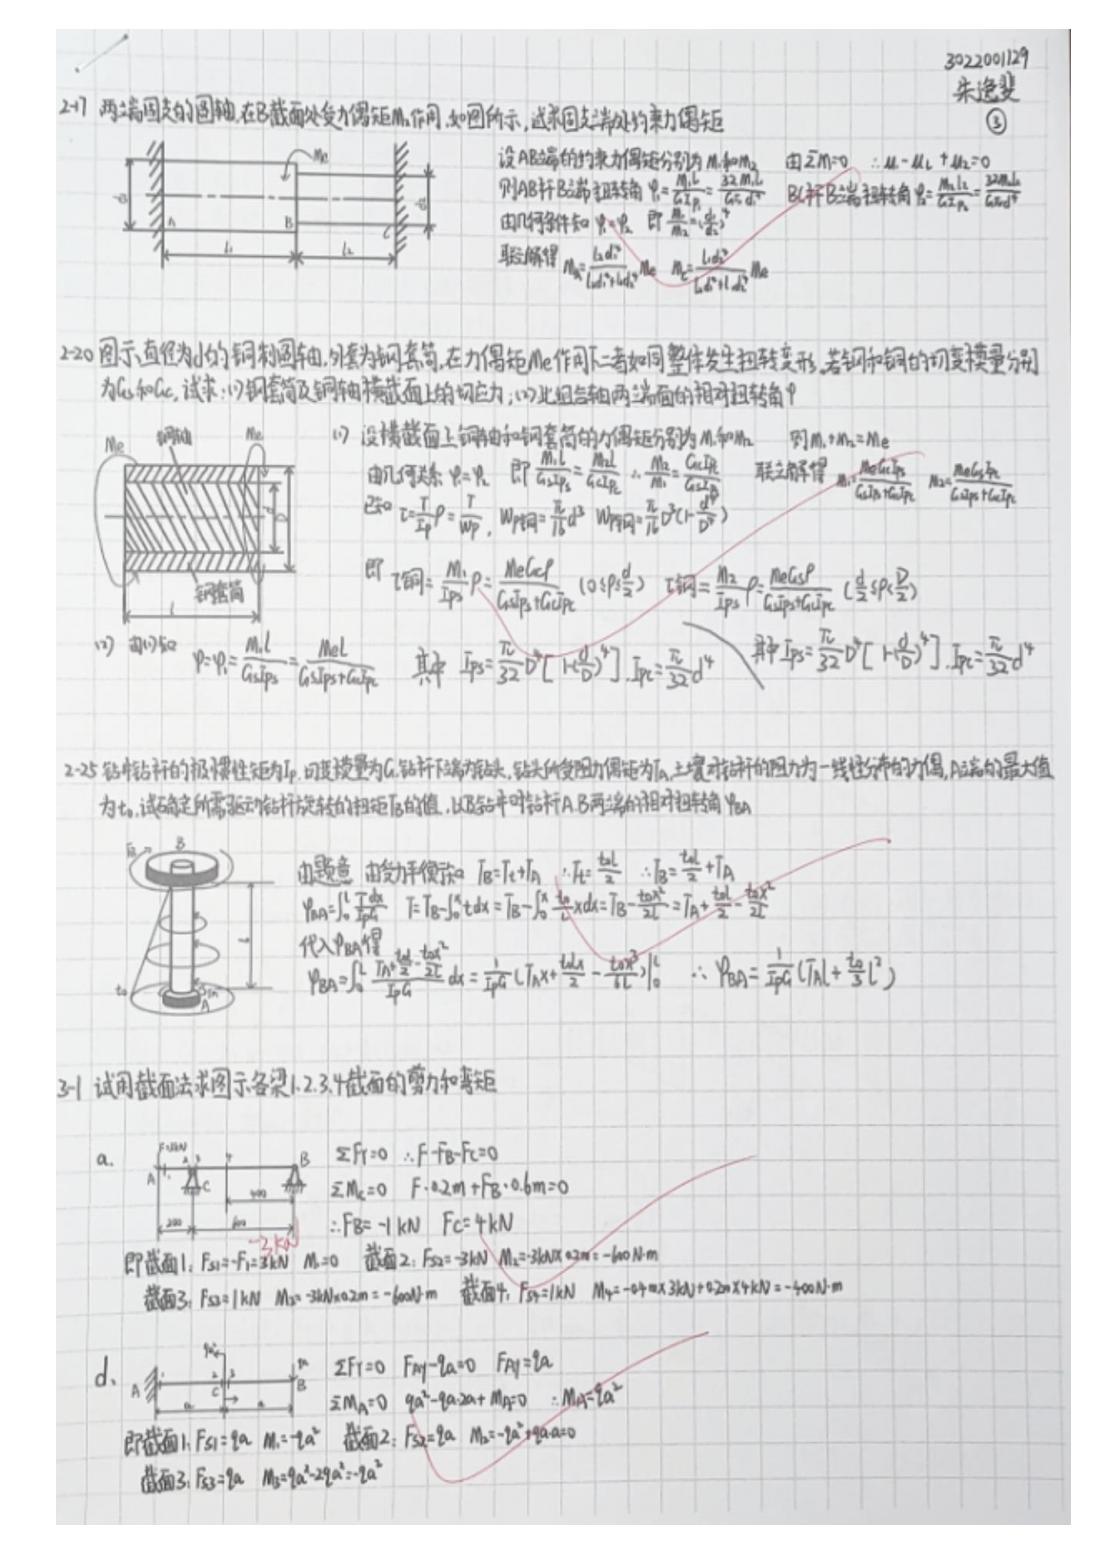 3022001129
朱逸斐
③
2-17 两端固支的圆轴,在B截面处受力偶矩Me作用,如图所示,试求固支端处约束力偶矩
Me
A
B
C
l₁
l₂
设AB端的约束力偶矩分别为M₁和M₂ 由ΣM=0
则AB杆B端扭转角 φ₁=M₁l/GIp₁=32M₁l/Gπd₁⁴ BC杆B端扭转角
由几何条件知 φ₁=φ₂ 即 M₁/M₂
联立解得
2-20 图示直径为d的铜制圆轴,外套为钢套筒,在力偶矩Me作用下二者如同整体发生扭转变形,若钢和铜的切变模量分别
为Gs和Gc,试求:(1)钢套筒及铜轴横截面上的切应力;(2)此组合轴两端面的相对扭转角φ
Me
铜轴
Me
d
D
钢套筒
l
(1) 设横截面上铜轴和钢套筒的力偶矩分别为M₁和M₂ 则M₁+M₂=Me
由几何关系 φ₁=φ₂ 即 M₁l/GsIps=M₂l/GcIpc ∴M₂/M₁=GcIpc/GsIps 联立解得 M₁=MeGcIpc/GsIps+GcIpc M₂=MeGsIps/GsIps+GcIpc
已知 τ=T/Ip ρ=T/Wp, Wp铜=π/16 d³ Wp钢=π/16 D³(1-d⁴/D⁴)
即 τ铜=M₁/Ips ρ=MeGcρ/GsIps+GcIpc (0≤ρ≤d/2) τ钢=M₂/Ips ρ=MeGsρ/GsIps+GcIpc (d/2≤ρ≤D/2)
(2) 由(1)知 φ=φ₁=M₁l/GsIps=Mel/GsIps+GcIpc 其中 Ips=π/32 D⁴[1-(d/D)⁴].Ipc=π/32 d⁴
其中 Ips=π/32 D⁴[1-(d/D)⁴].Ipc=π/32 d⁴
2-25 钻杆的极惯性矩为Ip,切变模量为G,钻杆下端为钻头,钻头所受阻力偶矩为TA,土壤对钻杆的阻力为一线性分布的力偶,A端的最大值
为t₀,试确定所需驱动钻杆旋转的扭矩TB的值,以及钻井时钻杆A.B两端的相对扭转角φBA
TB
B
t₀
A
l
由题意 由受力平衡知 TB=Tt+TA ∴Tt=t₀l/2 ∴TB=t₀l/2+TA
φBA=∫₀ˡTdx/IpG T=TB-∫₀ˣtdx=TB-∫₀ˣt₀/l xdx=TB-t₀x²/2l=TA+t₀l/2-t₀x²/2l
代入φBA得
φBA=∫₀ˡ(TA+t₀l/2-t₀x²/2l)/IpG dx=1/IpG(TAx+t₀lx/2-t₀x³/6l)|₀ˡ ∴φBA=1/IpG(TAl+t₀/3 l²)
3-1 试用截面法求图示各梁1.2.3.4截面的剪力和弯矩
a.
F=3kN
A
1
2
3
4
B
C
400
200
600
ΣFY=0 ∴F-FB-FC=0
ΣMC=0 F·0.2m+FB·0.6m=0
∴FB=-1kN FC=4kN
-3kN
即截面1: FS1=-F1=3kN M1=0 截面2: FS2=-3kN M2=-3kN×0.2m=-600N·m
截面3: FS3=1kN M3=-3kN×0.2m=-600N·m 截面4: FS4=1kN M4=-0.4m×3kN+0.2m×4kN=-400N·m
d.
qa²
A
1
2
3
C
B
a
a
ΣFY=0 FAy-qa=0 FAy=qa
ΣMA=0 qa²-qa·2a+MA=0 ∴MA=qa²
即截面1: FS1=qa M1=-qa² 截面2: FS2=qa M2=-qa²+qa·a=0
截面3: FS3=qa M3=qa²-2qa²=-qa²